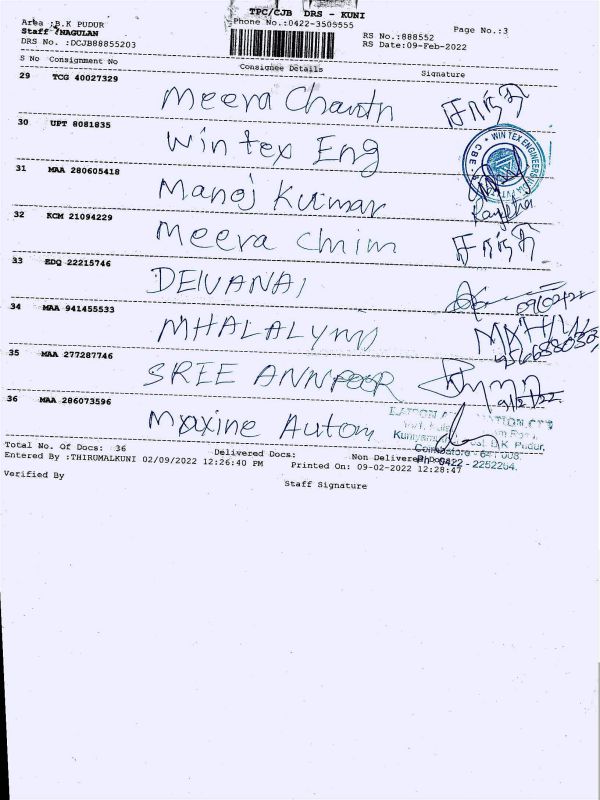 TPC/CJB DRS - KUNI
Area :B.K PUDUR
Phone No.:0422-3505555
Page No.:3
Staff :NAGULAN
RS No.:888552
DRS No. :DCJB88855203
RS Date:09-Feb-2022
S No Consignment No Consignee Details Signature
29 TCG 40027329
Meera
30 UPT 8081835
Win tex Eng
WIN TEX ENGINEERS
CBE
31 MAA 280605418
Manoj Kumar
32 KCM 21094229
Meera
33 EDQ 22215746
DEIVANAI
09/02/22
34 MAA 941455533
35 MAA 277287746
SREE
9/2/22
36 MAA 286073596
Maxine Autom
B.K. Pudur,
Coimbatore - 641 008.
Ph: 0422 - 2252264.
Total No. Of Docs: 36 Delivered Docs: Non Delivered Docs:
Entered By :THIRUMALKUNI 02/09/2022 12:26:40 PM Printed On: 09-02-2022 12:28:47
Verified By
Staff Signature